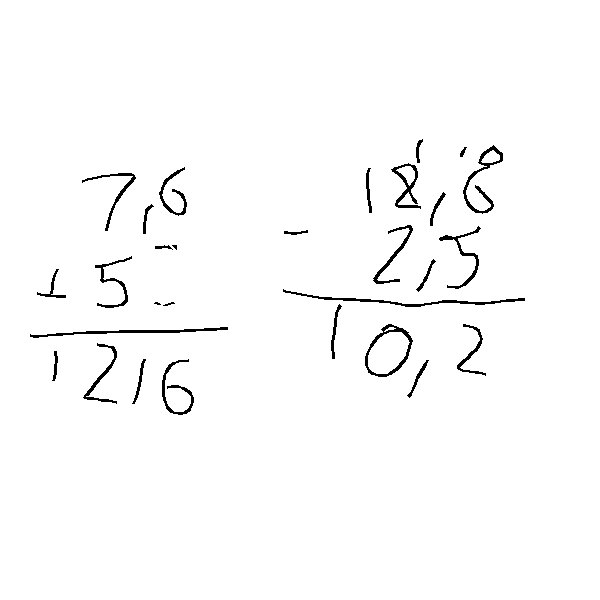 7,6
+ 5
12,6
18,6
- 2,5
10,2